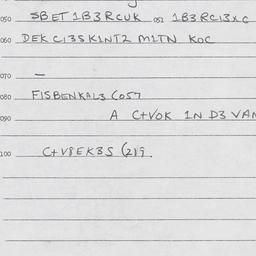 050 SBET 1B3RCUK 052 1B3RC13XC
060 DEK C13SK1NT2 M1TN KOC
070 —
080 F1SBENKAL3 (057
090 A C+VOK 1N D3 VAN
100 C+V8EK3S (219.